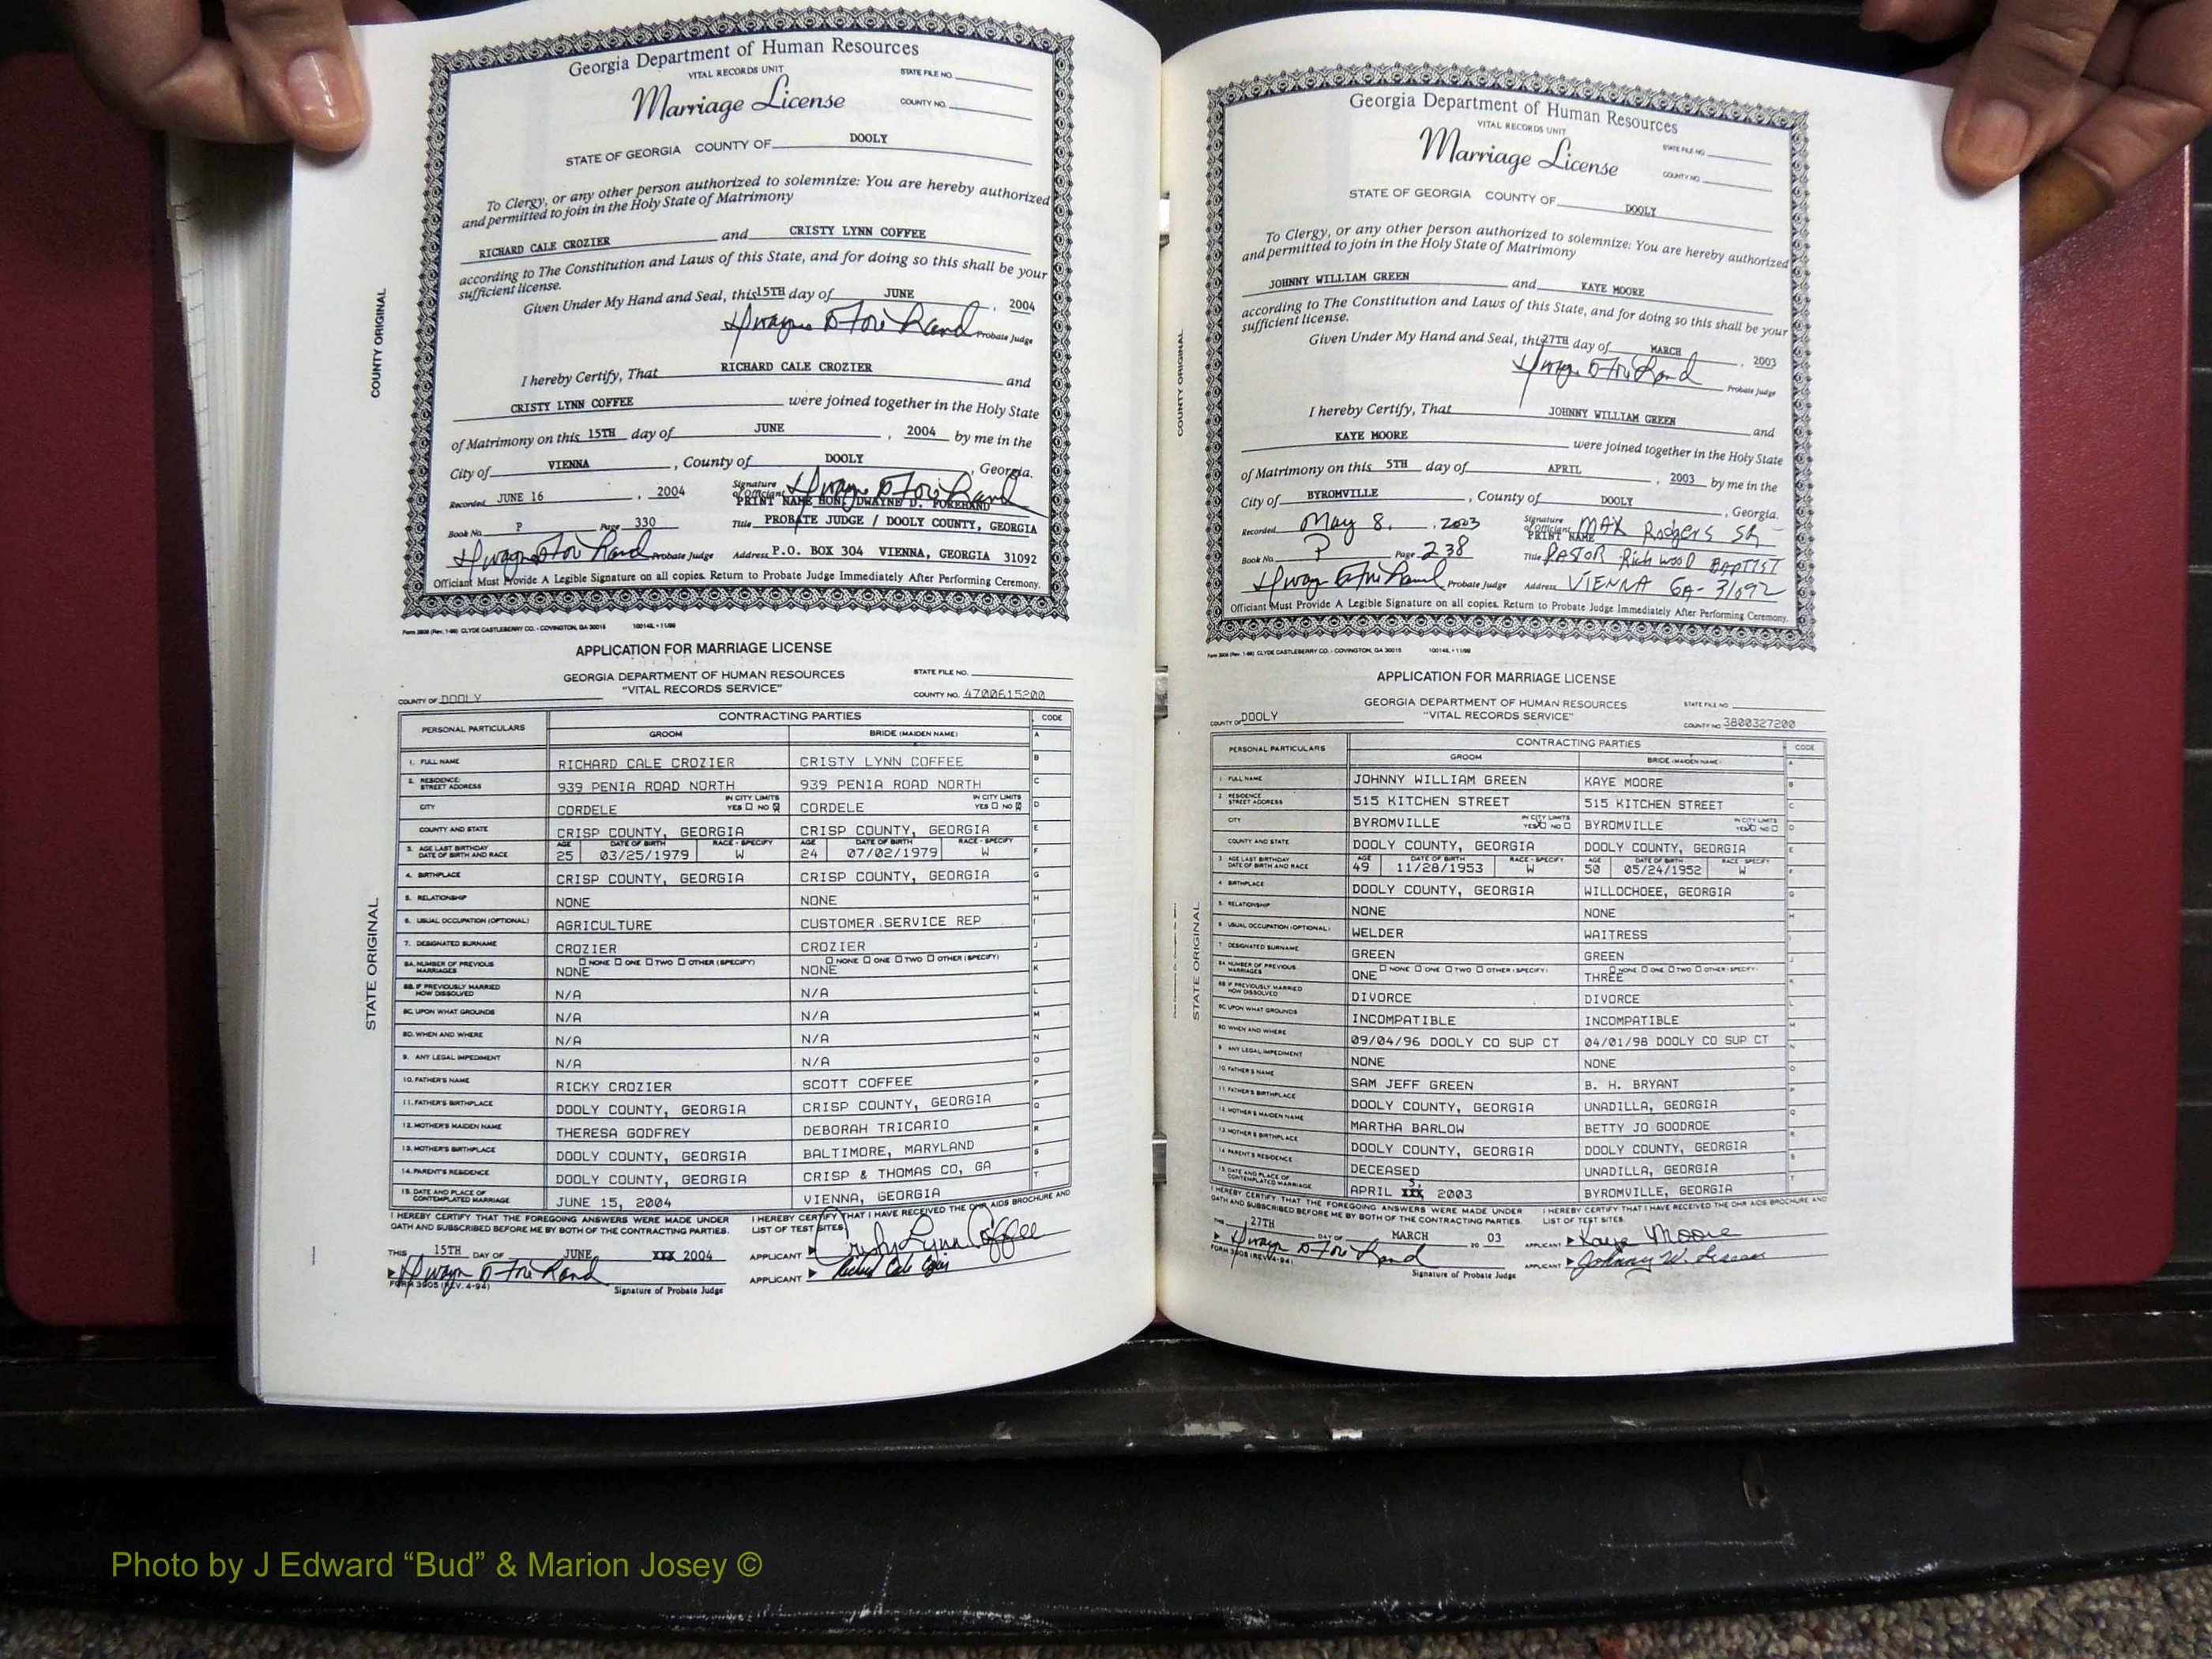 Georgia Department of Human Resources
VITAL RECORDS UNIT
STATE FILE NO.
Marriage License
COUNTY NO.
STATE OF GEORGIA COUNTY OF DOOLY
To Clergy, or any other person authorized to solemnize: You are hereby authorized
and permitted to join in the Holy State of Matrimony
RICHARD CALE CROZIER and CRISTY LYNN COFFEE
according to The Constitution and Laws of this State, and for doing so this shall be your
sufficient license.
Given Under My Hand and Seal, this 15TH day of JUNE, 2004
Probate Judge
I hereby Certify, That RICHARD CALE CROZIER and
CRISTY LYNN COFFEE were joined together in the Holy State
of Matrimony on this 15TH day of JUNE, 2004 by me in the
City of VIENNA, County of DOOLY, Georgia.
Recorded JUNE 16, 2004 Signature of Officiant
PRINT NAME HON. DWAYNE D. FOREHAND
Book No. P Page 330 Title PROBATE JUDGE / DOOLY COUNTY, GEORGIA
Probate Judge Address P.O. BOX 304 VIENNA, GEORGIA 31092
Officiant Must Provide A Legible Signature on all copies. Return to Probate Judge Immediately After Performing Ceremony.
COUNTY ORIGINAL
CLYDE CASTLEBERRY CO. - COVINGTON, GA 30015
APPLICATION FOR MARRIAGE LICENSE
GEORGIA DEPARTMENT OF HUMAN RESOURCES STATE FILE NO.
"VITAL RECORDS SERVICE"
COUNTY OF DOOLY COUNTY NO. 4700615200
PERSONAL PARTICULARS CONTRACTING PARTIES CODE
GROOM BRIDE (MAIDEN NAME) A
1. FULL NAME RICHARD CALE CROZIER CRISTY LYNN COFFEE B
2. RESIDENCE: STREET ADDRESS 939 PENIA ROAD NORTH 939 PENIA ROAD NORTH C
CITY CORDELE IN CITY LIMITS YES NO CORDELE IN CITY LIMITS YES NO D
COUNTY AND STATE CRISP COUNTY, GEORGIA CRISP COUNTY, GEORGIA E
3. AGE LAST BIRTHDAY DATE OF BIRTH AND RACE AGE 25 DATE OF BIRTH 03/25/1979 RACE - SPECIFY W AGE 24 DATE OF BIRTH 07/02/1979 RACE - SPECIFY W F
4. BIRTHPLACE CRISP COUNTY, GEORGIA CRISP COUNTY, GEORGIA G
5. RELATIONSHIP NONE NONE H
6. USUAL OCCUPATION (OPTIONAL) AGRICULTURE CUSTOMER SERVICE REP I
7. DESIGNATED SURNAME CROZIER CROZIER J
8A. NUMBER OF PREVIOUS MARRIAGES NONE ONE TWO OTHER (SPECIFY) NONE NONE ONE TWO OTHER (SPECIFY) NONE K
8B. IF PREVIOUSLY MARRIED HOW DISSOLVED N/A N/A L
8C. UPON WHAT GROUNDS N/A N/A M
8D. WHEN AND WHERE N/A N/A N
9. ANY LEGAL IMPEDIMENT N/A N/A O
10. FATHER'S NAME RICKY CROZIER SCOTT COFFEE P
11. FATHER'S BIRTHPLACE DOOLY COUNTY, GEORGIA CRISP COUNTY, GEORGIA Q
12. MOTHER'S MAIDEN NAME THERESA GODFREY DEBORAH TRICARIO R
13. MOTHER'S BIRTHPLACE DOOLY COUNTY, GEORGIA BALTIMORE, MARYLAND S
14. PARENT'S RESIDENCE DOOLY COUNTY, GEORGIA CRISP & THOMAS CO, GA T
15. DATE AND PLACE OF CONTEMPLATED MARRIAGE JUNE 15, 2004 VIENNA, GEORGIA
I HEREBY CERTIFY THAT THE FOREGOING ANSWERS WERE MADE UNDER
OATH AND SUBSCRIBED BEFORE ME BY BOTH OF THE CONTRACTING PARTIES.
I HEREBY CERTIFY THAT I HAVE RECEIVED THE DHR AIDS BROCHURE AND
LIST OF TEST SITES.
THIS 15TH DAY OF JUNE XXX 2004 APPLICANT Cristy Lynn Coffee
APPLICANT
FORM 3905 (REV. 4-94) Signature of Probate Judge
STATE ORIGINAL
Georgia Department of Human Resources
VITAL RECORDS UNIT
STATE FILE NO.
Marriage License
COUNTY NO.
STATE OF GEORGIA COUNTY OF DOOLY
To Clergy, or any other person authorized to solemnize: You are hereby authorized
and permitted to join in the Holy State of Matrimony
JOHNNY WILLIAM GREEN and KAYE MOORE
according to The Constitution and Laws of this State, and for doing so this shall be your
sufficient license.
Given Under My Hand and Seal, this 27TH day of MARCH, 2003
Probate Judge
I hereby Certify, That JOHNNY WILLIAM GREEN and
KAYE MOORE were joined together in the Holy State
of Matrimony on this 5TH day of APRIL, 2003 by me in the
City of BYROMVILLE, County of DOOLY, Georgia.
Recorded May 8, 2003 Signature of Officiant MAX Rodgers SR
PRINT NAME
Book No. P Page 238 Title PASTOR Richwood BAPTIST
Probate Judge Address VIENNA GA- 31092
Officiant Must Provide A Legible Signature on all copies. Return to Probate Judge Immediately After Performing Ceremony.
COUNTY ORIGINAL
CLYDE CASTLEBERRY CO. - COVINGTON, GA 30015
APPLICATION FOR MARRIAGE LICENSE
GEORGIA DEPARTMENT OF HUMAN RESOURCES STATE FILE NO.
"VITAL RECORDS SERVICE"
COUNTY OF DOOLY COUNTY NO. 3800327200
PERSONAL PARTICULARS CONTRACTING PARTIES CODE
GROOM BRIDE (MAIDEN NAME) A
1. FULL NAME JOHNNY WILLIAM GREEN KAYE MOORE B
2. RESIDENCE STREET ADDRESS 515 KITCHEN STREET 515 KITCHEN STREET C
CITY BYROMVILLE IN CITY LIMITS YES NO BYROMVILLE IN CITY LIMITS YES NO D
COUNTY AND STATE DOOLY COUNTY, GEORGIA DOOLY COUNTY, GEORGIA E
3. AGE LAST BIRTHDAY DATE OF BIRTH AND RACE AGE 49 DATE OF BIRTH 11/28/1953 RACE - SPECIFY W AGE 50 DATE OF BIRTH 05/24/1952 RACE - SPECIFY W F
4. BIRTHPLACE DOOLY COUNTY, GEORGIA WILLOCHOEE, GEORGIA G
5. RELATIONSHIP NONE NONE H
6. USUAL OCCUPATION (OPTIONAL) WELDER WAITRESS I
7. DESIGNATED SURNAME GREEN GREEN J
8A. NUMBER OF PREVIOUS MARRIAGES ONE NONE ONE TWO OTHER (SPECIFY) THREE NONE ONE TWO OTHER (SPECIFY) K
8B. IF PREVIOUSLY MARRIED HOW DISSOLVED DIVORCE DIVORCE L
8C. UPON WHAT GROUNDS INCOMPATIBLE INCOMPATIBLE M
8D. WHEN AND WHERE 09/04/96 DOOLY CO SUP CT 04/01/98 DOOLY CO SUP CT N
9. ANY LEGAL IMPEDIMENT NONE NONE O
10. FATHER'S NAME SAM JEFF GREEN B. H. BRYANT P
11. FATHER'S BIRTHPLACE DOOLY COUNTY, GEORGIA UNADILLA, GEORGIA Q
12. MOTHER'S MAIDEN NAME MARTHA BARLOW BETTY JO GOODROE R
13. MOTHER'S BIRTHPLACE DOOLY COUNTY, GEORGIA DOOLY COUNTY, GEORGIA S
14. PARENT'S RESIDENCE DECEASED UNADILLA, GEORGIA T
15. DATE AND PLACE OF CONTEMPLATED MARRIAGE APRIL 5, XXX 2003 BYROMVILLE, GEORGIA
I HEREBY CERTIFY THAT THE FOREGOING ANSWERS WERE MADE UNDER
OATH AND SUBSCRIBED BEFORE ME BY BOTH OF THE CONTRACTING PARTIES.
I HEREBY CERTIFY THAT I HAVE RECEIVED THE DHR AIDS BROCHURE AND
LIST OF TEST SITES.
THIS 27TH DAY OF MARCH 20 03 APPLICANT Kaye Moore
APPLICANT Johnny W. Green
FORM 3905 (REV. 4-94) Signature of Probate Judge
STATE ORIGINAL
Photo by J Edward “Bud” & Marion Josey ©